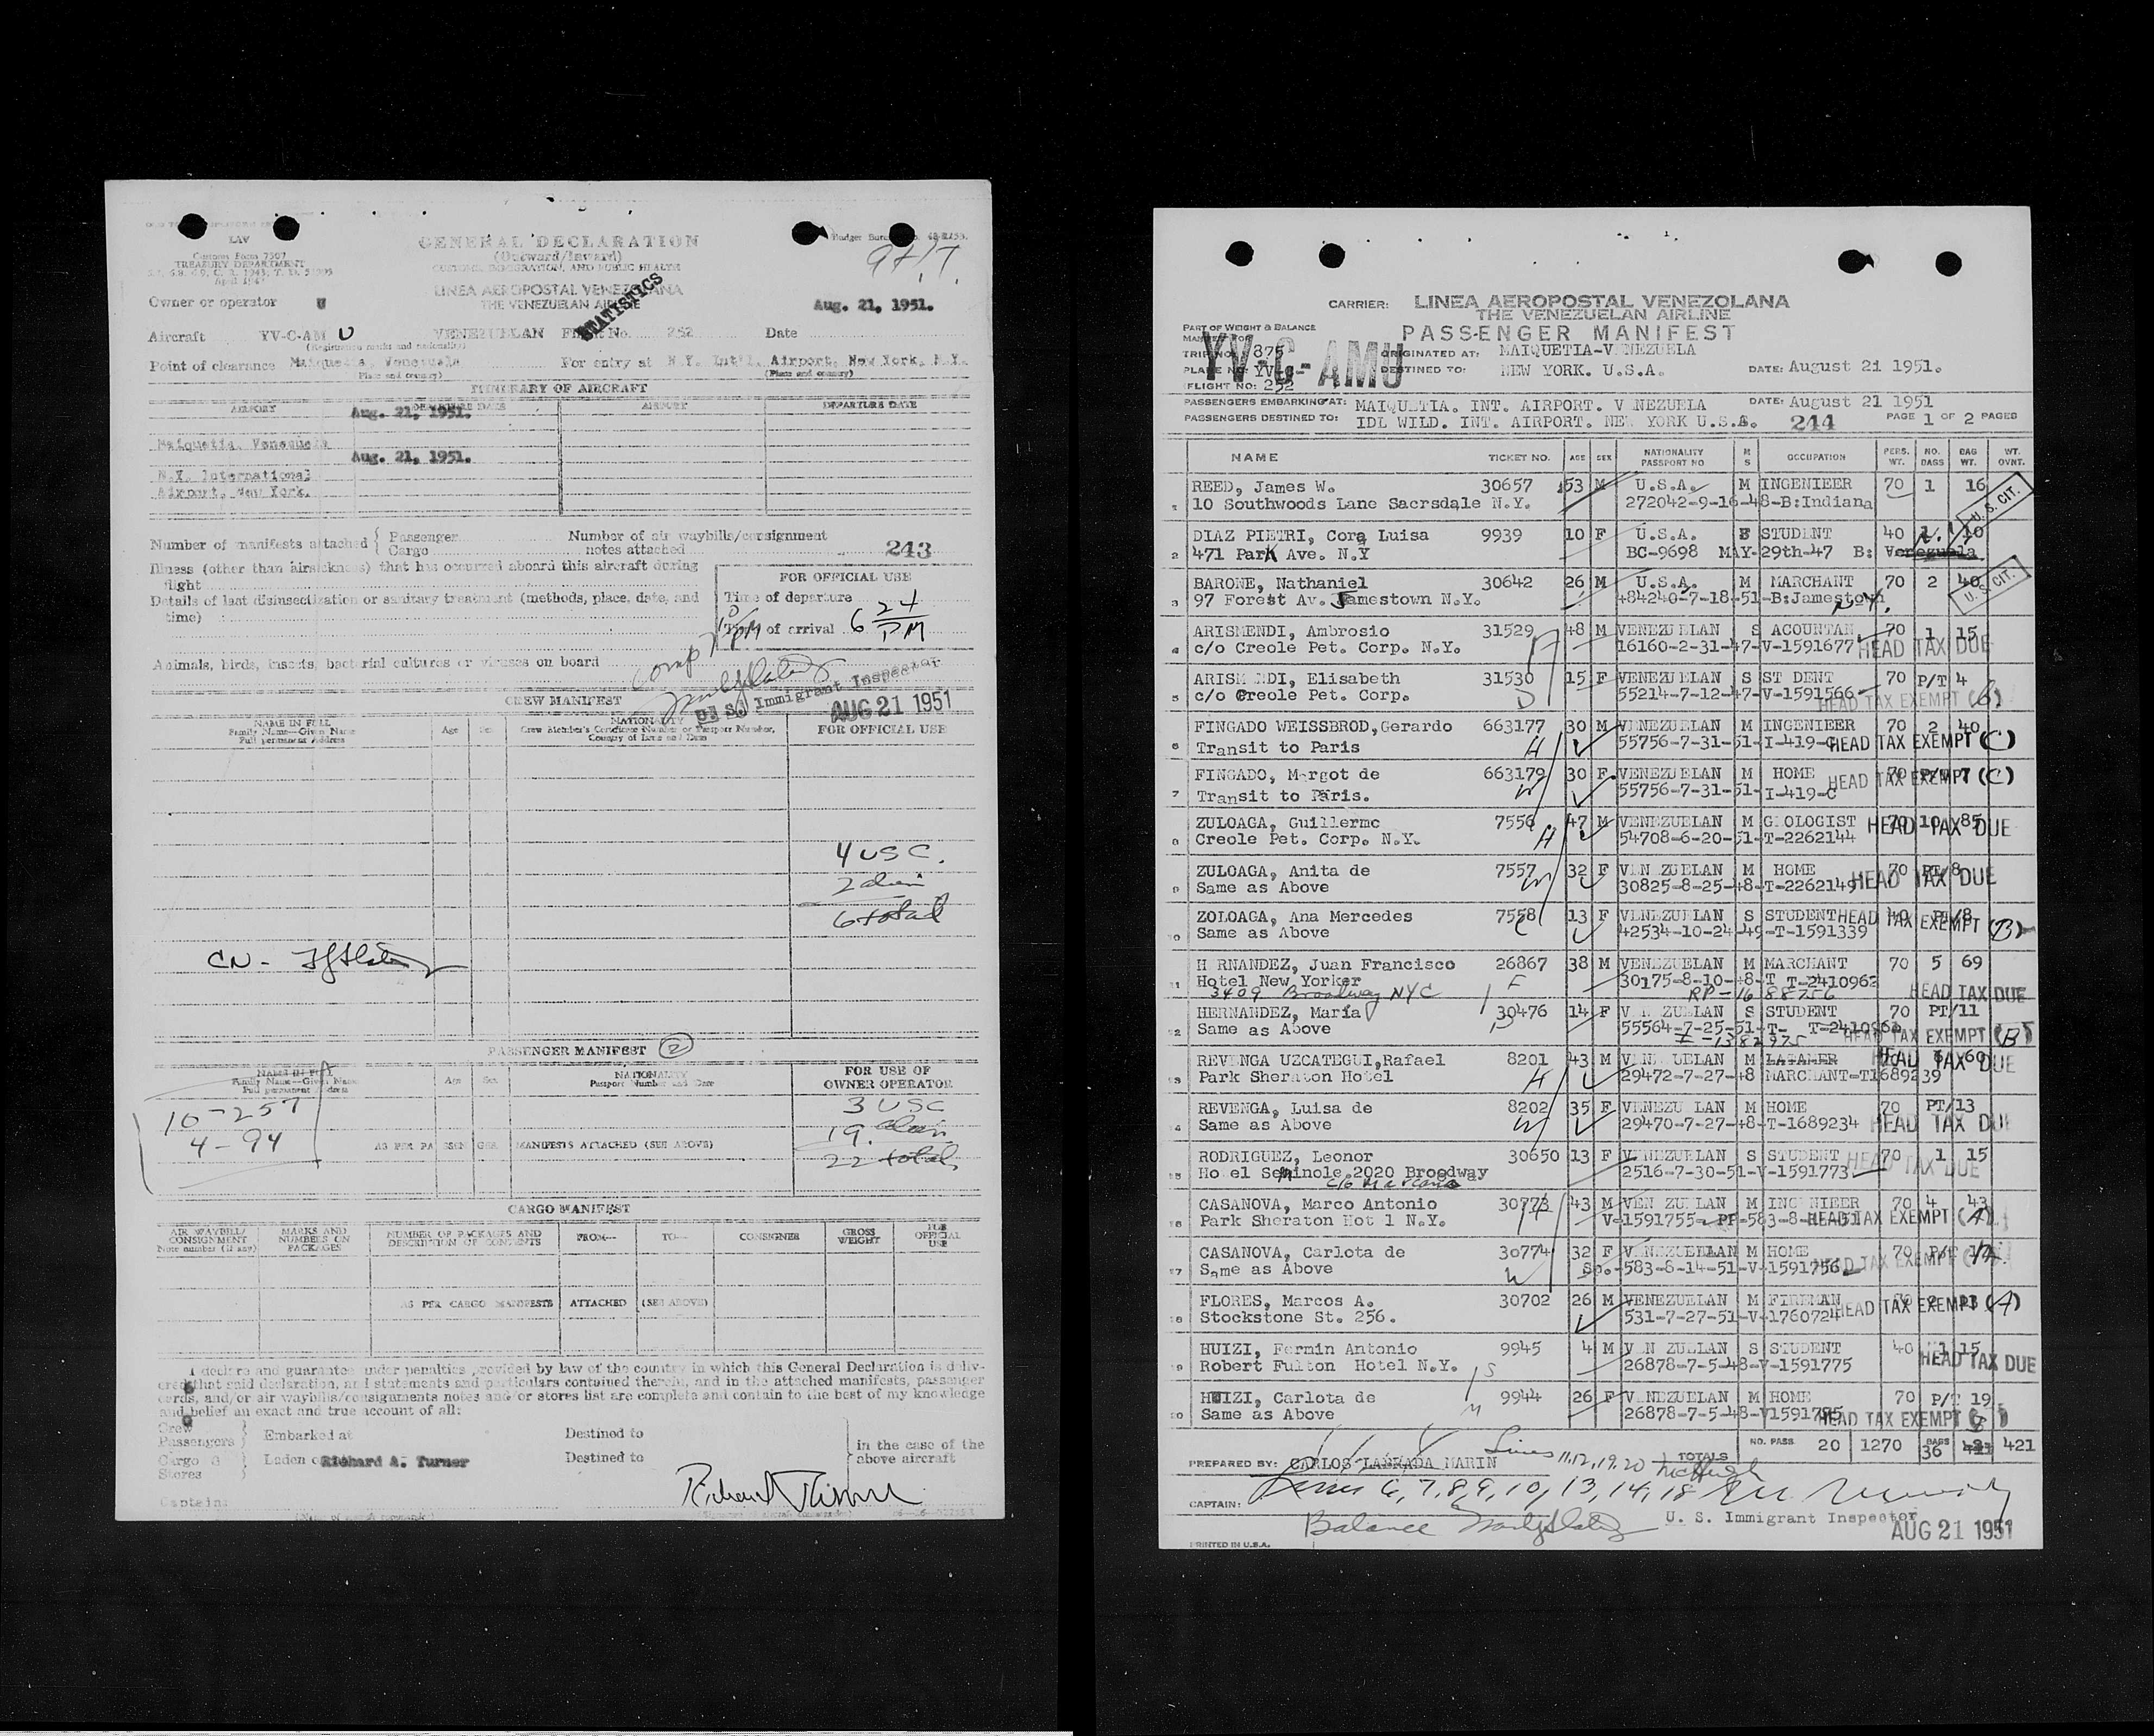 LAV
Customs Form 7507
TREASURY DEPARTMENT
April 1947
GENERAL DECLARATION
(Outward/Inward)
CUSTOMS, IMMIGRATION, AND PUBLIC HEALTH
LINEA AEROPOSTAL VENEZOLANA
THE VENEZUELAN AIRLINE
STATISTICS
Owner or operator U
Aug. 21, 1951.
Aircraft YV-C-AM U VENEZUELAN Flight No. 252 Date
(Registration marks and nationality)
Point of clearance Maiquetia, Venezuela For entry at N.Y. Int'l. Airport, New York, N.Y.
(Place and country) (Place and country)
ITINERARY OF AIRCRAFT
AIRPORT DEPARTURE DATE AIRPORT DEPARTURE DATE
Aug. 21, 1951.
Maiquetia, Venezuela
Aug. 21, 1951.
N.Y. International
Airport, New York.
Number of manifests attached { Passenger Number of air waybills/consignment
Cargo notes attached 243
Illness (other than airsickness) that has occurred aboard this aircraft during
flight
FOR OFFICIAL USE
Details of last disinsectization or sanitary treatment (methods, place, date, and
time)
Time of departure
Time of arrival 6 24 PM
Animals, birds, insects, bacterial cultures or viruses on board
U. S. Immigrant Inspector
AUG 21 1951
CREW MANIFEST
NAME IN FULL
Family Name—Given Name
Full permanent Address
Age Sex
NATIONALITY
Crew Member's Certificate Number or Passport Number,
Country of Issue and Date
FOR OFFICIAL USE
4 USC.
2 alien
6 total
PASSENGER MANIFEST 2
NAME IN FULL
Family Name—Given Name
Full permanent Address
Age Sex
NATIONALITY
Passport Number and Date
FOR USE OF
OWNER OPERATOR
10-257
4-94
3 USC
19. alien
22 total
AS PER PASSENGER MANIFESTS ATTACHED (SEE ABOVE)
CARGO MANIFEST
AIR WAYBILL/
CONSIGNMENT
Note number (if any)
MARKS AND
NUMBERS ON
PACKAGES
NUMBER OF PACKAGES AND
DESCRIPTION OF CONTENTS
FROM— TO— CONSIGNEE
GROSS
WEIGHT
FOR
OFFICIAL
USE
AS PER CARGO MANIFESTS ATTACHED (SEE ABOVE)
I declare and guarantee under penalties provided by law of the country in which this General Declaration is deliv-
ered that said declaration, and statements and particulars contained therein, and in the attached manifests, passenger
cards, and/or air waybills/consignments notes and/or stores list are complete and contain to the best of my knowledge
and belief an exact and true account of all:
Crew
Passengers } Embarked at Destined to
Cargo
Stores } Laden on Destined to
in the case of the
above aircraft
Richard A. Turner
Richard A Turner
Captain:
CARRIER: LINEA AEROPOSTAL VENEZOLANA
THE VENEZUELAN AIRLINE
PASSENGER MANIFEST
PART OF WEIGHT & BALANCE
MANIFEST FOR
TRIP NO: 875
PLANE NO: YV
FLIGHT NO: 252
YV-C-AMU
ORIGINATED AT: MAIQUETIA-V NEZUELA
DESTINED TO: NEW YORK. U.S.A. DATE: August 21 1951.
PASSENGERS EMBARKING AT: MAIQUETIA. INT. AIRPORT. V NEZUELA DATE: August 21 1951
PASSENGERS DESTINED TO: IDL WILD. INT. AIRPORT. NEW YORK U.S.A. 244 PAGE 1 OF 2 PAGES
NAME TICKET NO. AGE SEX NATIONALITY PASSPORT NO M S OCCUPATION PERS. WT. NO. BAGS BAG WT. WT. OVNT.
1 REED, James W. 30657 53 M U.S.A. M INGENIEER 70 1 16
10 Southwoods Lane Sacrsdale N.Y. 272042-9-16-48-B:Indiana
U. S. CIT.
2 DIAZ PIETRI, Cora Luisa 9939 10 F U.S.A. S STUDENT 40 1 10
471 Park Ave. N.Y BC-9698 MAY-29th-47 B: Venezuela
3 BARONE, Nathaniel 30642 26 M U.S.A. M MARCHANT 70 2 40
97 Forest Av. Jamestown N.Y. 484240-7-18-51-B:Jamestown N.Y.
U. S. CIT.
4 ARISMENDI, Ambrosio 31529 48 M VENEZUELAN S ACOUNTAN 70 1 15
c/o Creole Pet. Corp. N.Y. 16160-2-31-47-V-1591677 HEAD TAX DUE
5 ARISM NDI, Elisabeth 31530 15 F VENEZUELAN S ST DENT 70 P/T 4
c/o Creole Pet. Corp. 55214-7-12-47-V-1591566 HEAD TAX EXEMPT
6 FINGADO WEISSBROD,Gerardo 663177 30 M VENEZUELAN M INGENIEER 70 2 40
Transit to Paris 55756-7-31-51-I-419-C HEAD TAX EXEMPT (C)
7 FINGADO, Margot de 663179 30 F VENEZUELAN M HOME 70 P/T 7
Transit to Paris. 55756-7-31-51-I-419-C HEAD TAX EXEMPT (C)
8 ZULOAGA, Guillermo 7556 47 M VENEZUELAN M G OLOGIST 70 10 85
Creole Pet. Corp. N.Y. 54708-6-20-51-T-2262144 HEAD TAX DUE
9 ZULOAGA, Anita de 7557 32 F VEN ZUELAN M HOME 70 PT/8
Same as Above 30825-8-25-48-T-2262149 HEAD TAX DUE
10 ZOLOAGA, Ana Mercedes 7558 13 F VENEZUELAN S STUDENT 40 PT/8
Same as Above 42534-10-24-49-T-1591339 HEAD TAX EXEMPT (B)
11 H RNANDEZ, Juan Francisco 26867 38 M VENEZUELAN M MARCHANT 70 5 69
Hotel New Yorker 30175-8-10-48-T T-2410962
3409 Broadway NYC RP-1688756 HEAD TAX DUE
12 HERNANDEZ, Maria 30476 14 F VEN ZUELAN S STUDENT 70 PT/11
Same as Above 55564-7-25-51-T- T-2410962
I-1382975 HEAD TAX EXEMPT (B)
13 REVENGA UZCATEGUI,Rafael 8201 43 M VENEZUELAN M 60
Park Sheraton Hotel 29472-7-27-48 MARCHANT-T1689239 HEAD TAX DUE
14 REVENGA, Luisa de 8202 35 F VENEZU LAN M HOME 70 PT/13
Same as Above 29470-7-27-48-T-1689234 HEAD TAX DUE
15 RODRIGUEZ, Leonor 30650 13 F VENEZUELAN S STUDENT 70 1 15
Ho el Seminole 2020 Broadway 2516-7-30-51-V-1591773 HEAD TAX DUE
16 CASANOVA, Marco Antonio 30773 43 M VEN ZUELAN M ING NIEER 70 4 43
Park Sheraton Hot l N.Y. V-1591755- PP-583-8- HEAD TAX EXEMPT (A)
17 CASANOVA, Carlota de 30774 32 F VENEZUELAN M HOME 70 P/T 17
Same as Above Sp.-583-8-14-51-V-1591756 HEAD TAX EXEMPT
18 FLORES, Marcos A. 30702 26 M VENEZUELAN M FIREMAN 70 2 23
Stockstone St. 256. 531-7-27-51-V-1760724 HEAD TAX EXEMPT (A)
19 HUIZI, Fermin Antonio 9945 4 M VEN ZUELAN S STUDENT 40 1 15
Robert Fulton Hotel N.Y. 26878-7-5-48-V-1591775 HEAD TAX DUE
20 HUIZI, Carlota de 9944 26 F VENEZUELAN M HOME 70 P/T 19
Same as Above 26878-7-5-48-V1591795 HEAD TAX EXEMPT
TOTALS NO. PASS 20 1270 BAGS 36 421 421
PREPARED BY: CARLOS LABRADA MARIN Lines 11,12,19,20 McHugh
CAPTAIN: Lines 6,7,8,9,10,13,14,18
Balance
U. S. Immigrant Inspector
AUG 21 1951
PRINTED IN U.S.A.